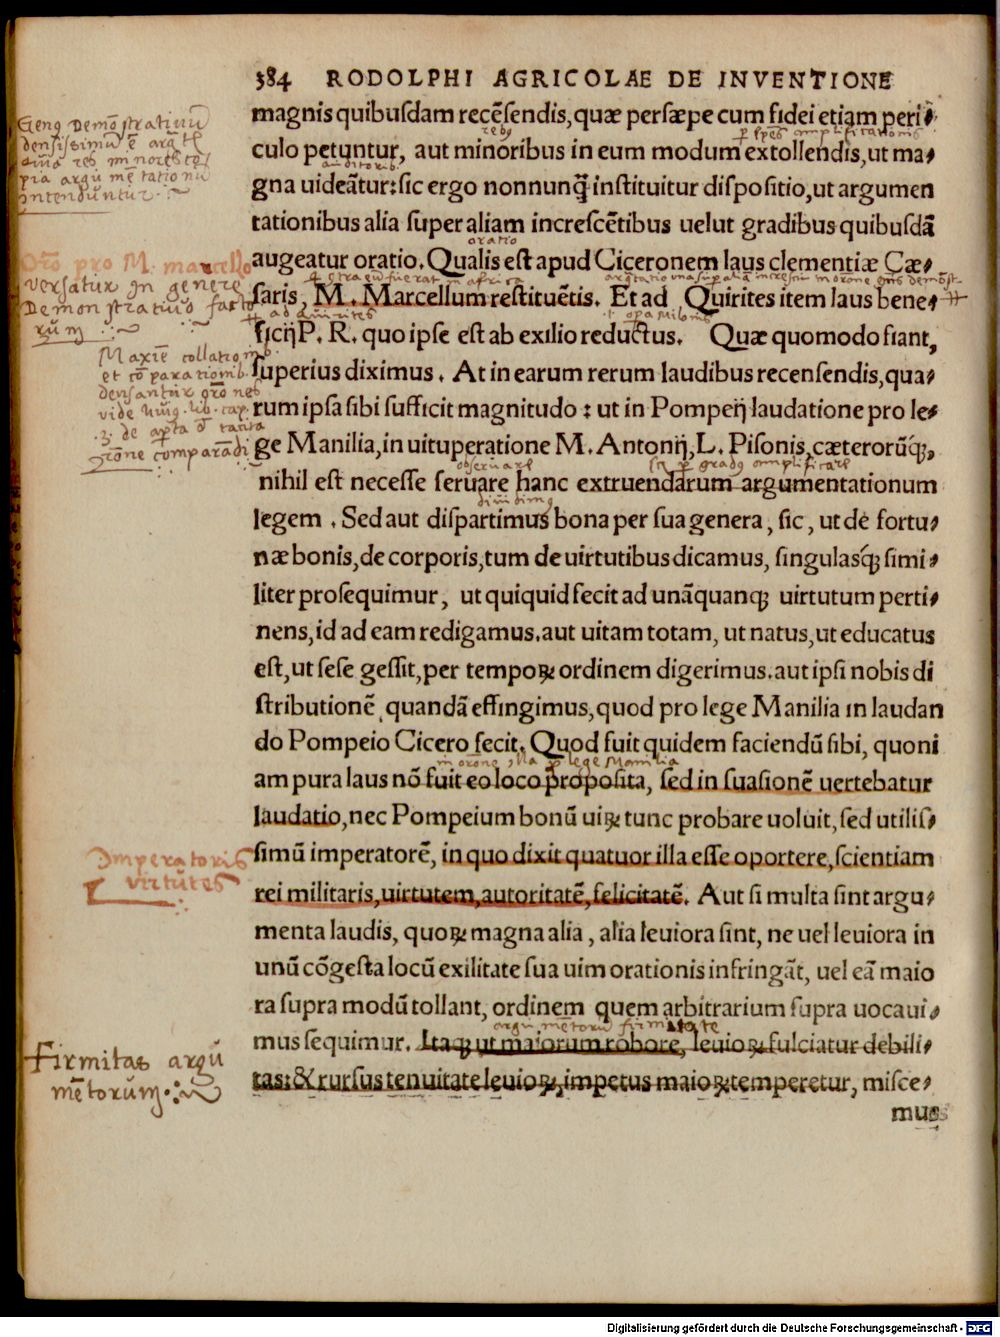 384 RODOLPHI AGRICOLAE DE INVENTIONE
magnis quibusdam recēſendis, quæ perſæpe cum fidei etiam peri⸗
culo petuntur, aut minoribus in eum modum extollendis, ut ma⸗
gna uideātur: sic ergo nonnunq̃ instituitur dispositio, ut argumen
tationibus alia super aliam increscētibus uelut gradibus quibusdā
augeatur oratio. Qualis est apud Ciceronem laus clementiæ Cæ⸗
saris, M. Marcellum restituētis. Et ad Quirites item laus bene⸗
ficij P. R. quo ipse est ab exilio reductus. Quæ quomodo fiant,
superius diximus. At in earum rerum laudibus recensendis, qua⸗
rum ipsa sibi sufficit magnitudo: ut in Pompeij laudatione pro le⸗
ge Manilia, in uituperatione M. Antonij, L. Pisonis, cæterorūq́;,
nihil est necesse seruare hanc extruendarum argumentationum
legem. Sed aut dispartimus bona per sua genera, sic, ut de fortu⸗
næ bonis, de corporis, tum de uirtutibus dicamus, singulasq́; simi⸗
liter prosequimur, ut quiquid fecit ad unāquanq; uirtutum perti⸗
nens, id ad eam redigamus. aut uitam totam, ut natus, ut educatus
est, ut sese gessit, per tempoꝝ ordinem digerimus. aut ipsi nobis di
stributionē quandā effingimus, quod pro lege Manilia in laudan
do Pompeio Cicero fecit. Quod fuit quidem faciendū sibi, quoni
am pura laus nō fuit eo loco proposita, sed in suasionē uertebatur
laudatio, nec Pompeium bonū uiꝝ tunc probare uoluit, sed utilis⸗
simū imperatorē, in quo dixit quatuor illa esse oportere, scientiam
rei militaris, uirtutem, autoritatē, felicitatē. Aut si multa sint argu⸗
menta laudis, quoꝝ magna alia, alia leuiora sint, ne uel leuiora in
unū cōgesta locū exilitate sua uim orationis infringāt, uel eā maio
ra supra modū tollant, ordinem quem arbitrarium supra uocaui⸗
mus sequimur. Itaq; ut maiorum robore, leuioꝝ fulciatur debili⸗
tas: & rursus tenuitate leuioꝝ, impetus maioꝝ temperetur, misce⸗
mus
Genꝰ Demōstratiuū
Orō pro M. marcello
versatur in genere
Demonstratiuo
Maxiē collationib.
et cōparationib.
Imperatoris
virtutes
Firmitas argu
mētorum
oratio
ad quirites
observare
in orone illa p lege Manilia
argumētorū firmitate
Digitalisierung gefördert durch die Deutsche Forschungsgemeinschaft - DFG